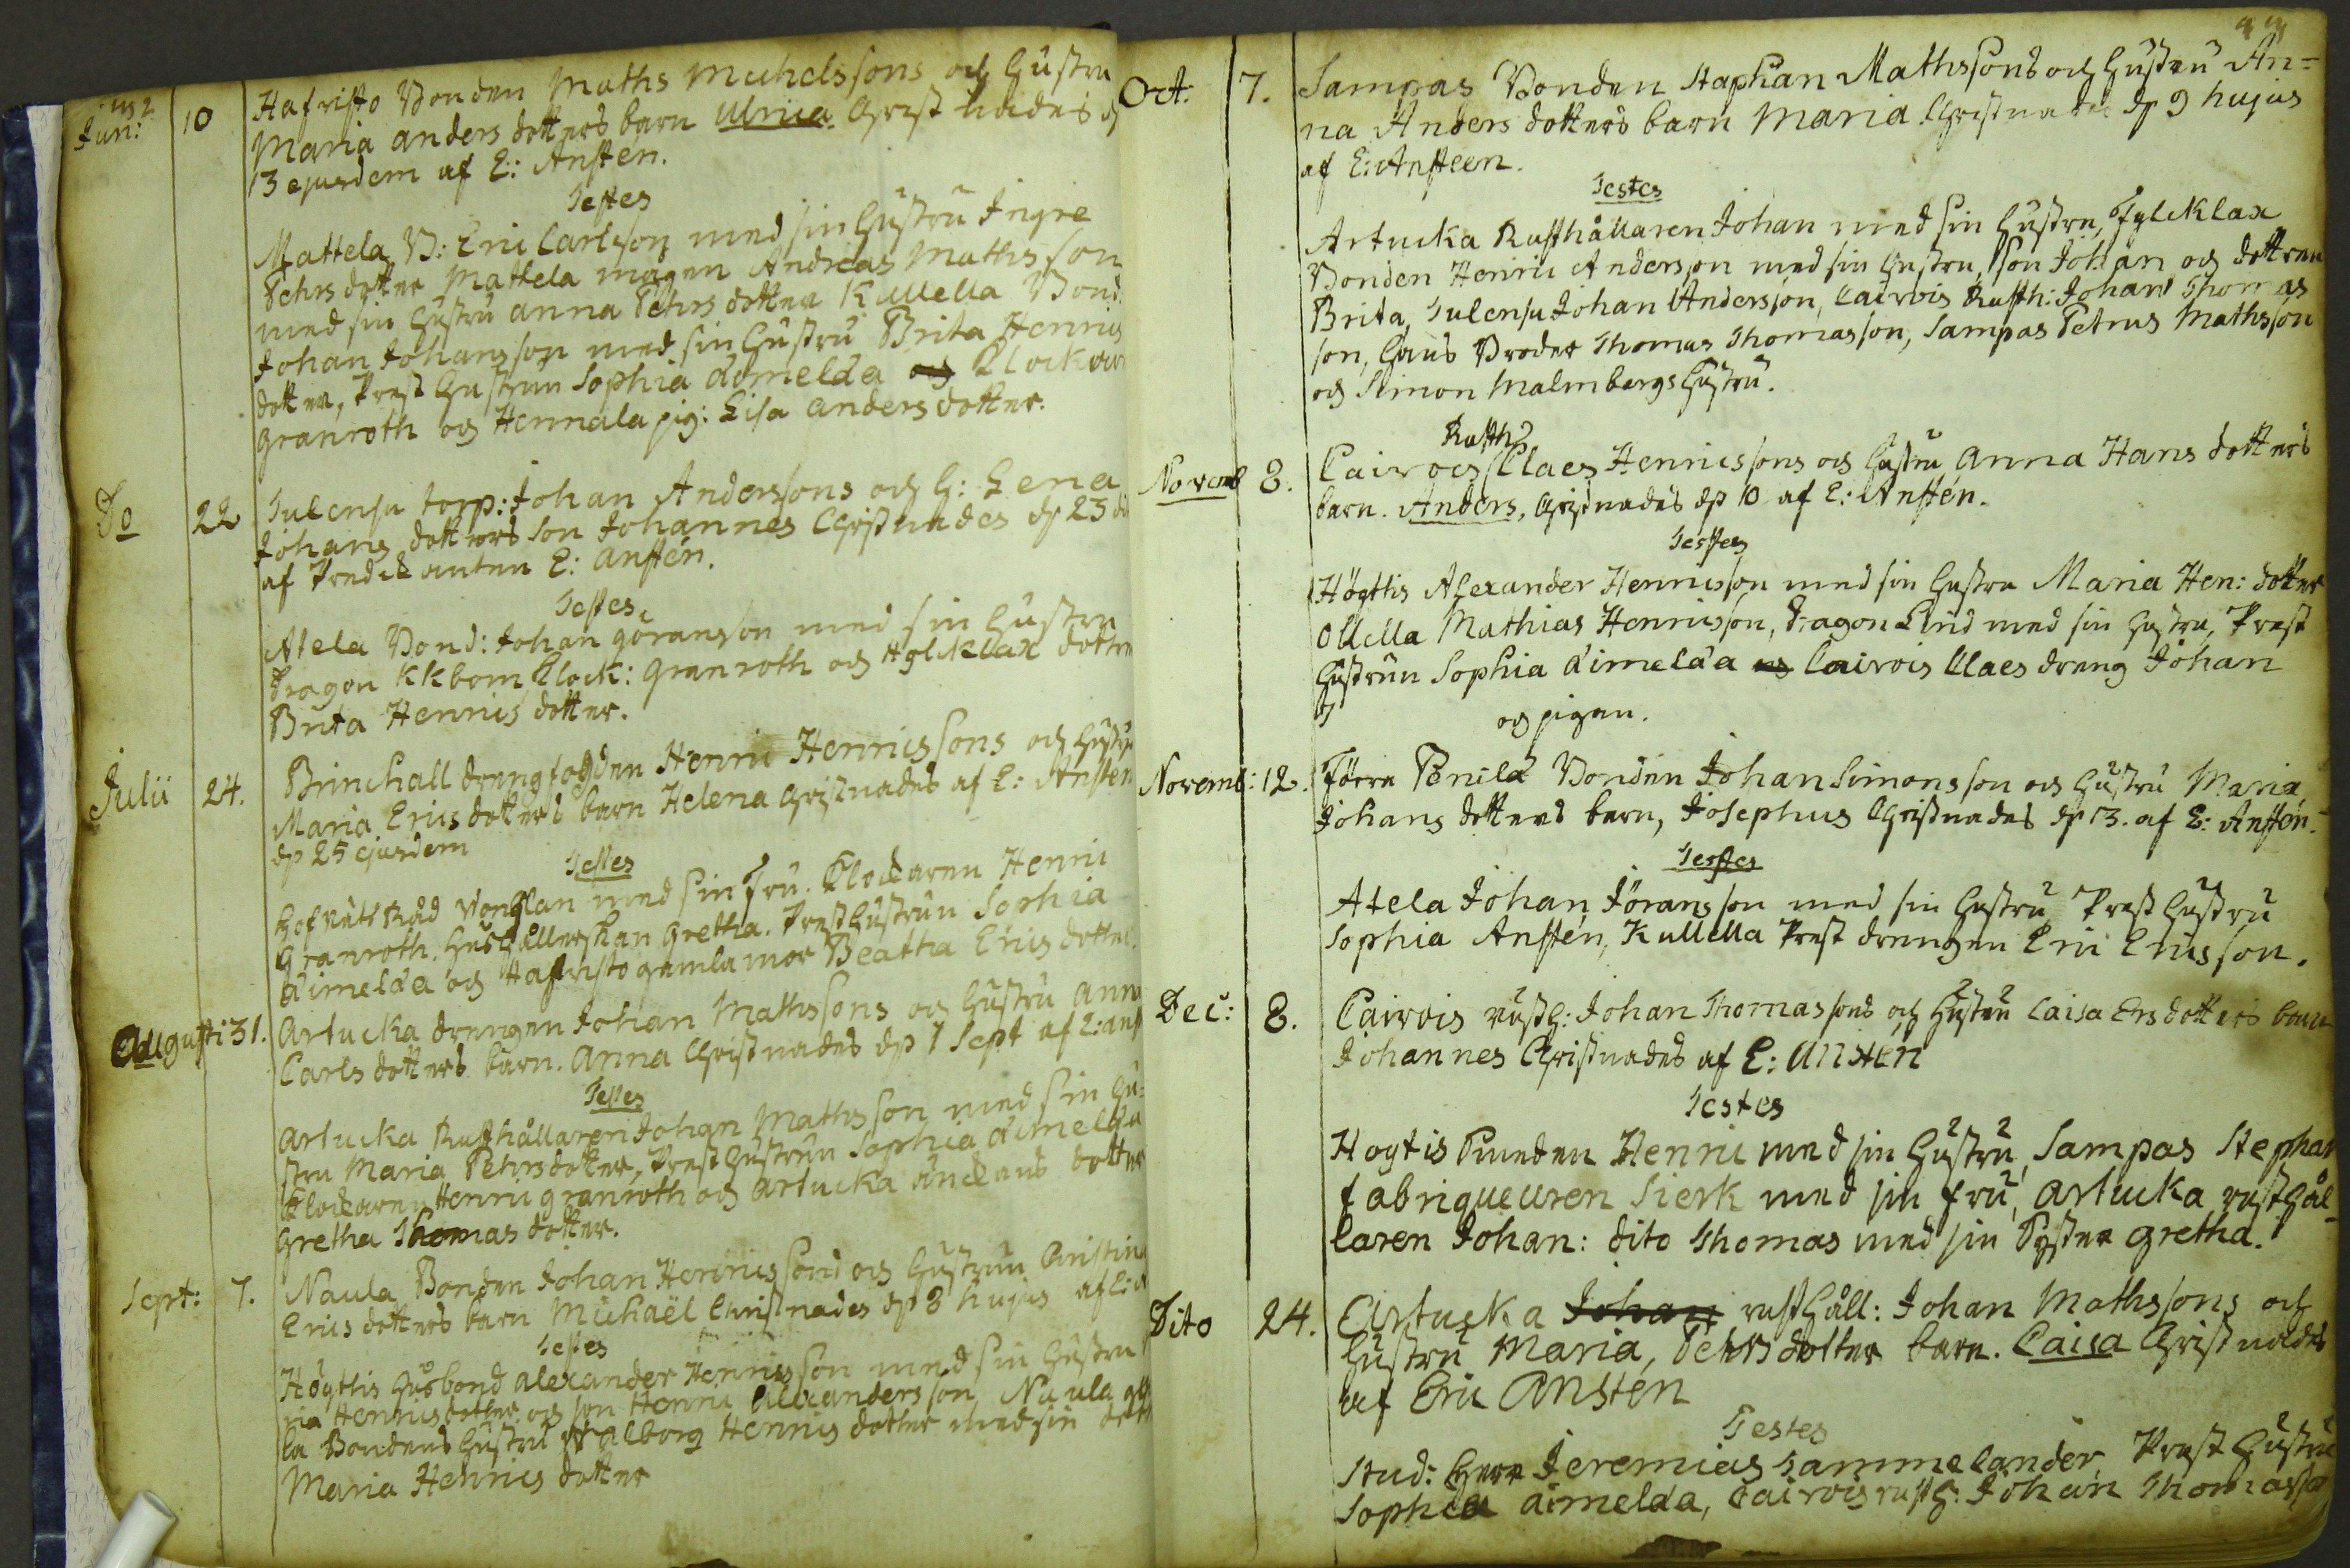 Jun: 10 Hafristo Bonden Maths Michelssons och Hustru
Maria anders dotters barn Ulrica Christnades d
13 ejusdem af E: Anstén.
Testes
Mattela B: Eric Carlsson med sin Hustru Ingre
Pehrs dotter Mattela mågen Andreas Mathsson
med sin Hustru anna Pehrs dotter Kullella Bond
Johan Johansson med sin Hustru Brita Henrics
dotter, Prest Hustrun Sophia aimelæa och Klockarn
Granroth och Hennala pig: Lisa anders dotter.
Do 22 Julensu torp: Johan Anderssons och H: Lena
Johans dotters son Johannes Christnades dn 23 d
af Predicanten E: anstén.
Testes
Atela Bond: Johan göransson med sin Hustru
Dragon Ekbom Clock: Granroth och dottren
Brita Henrics dotter.
Julii 24. Brinchall drengfogden Henric Henricssons och Hustru
Maria Erics dotters barn Helena Christnades af E: Ansten
dn 25 ejusdem
Testes
Hofrätts Råd med sin Fru. Klockaren Henric
Granroth. Hushållerskan Gretha. Prest Hustrun Sophia
aimelæa och Hafristo gamla mor Beatha Erics dotter.
Augusti 31. Artucka drengen Johan Mathssons och Hustru anna
Carls dotters barn. Anna Christnades dn 1 Sept af E: anst
Testes
Artucka Rusthållaren Johan Mathsson med sin Hu-
stru Maria Pehrsdotter, Prest Hustrun Sophia aimelæa
Klockaren Henric granroth och Artucka änckans dotter
Gretha Thomas dotter.
Sept: 7. Naula Bonden Johan Henricssons och Hustrun Christina
Erics dotters barn Michaël Christnades dn 8 hujus af E: A
Testes
Högttis Husbond alexander Henricsson med sin Hustru
ria Henricsdotter och son Henric Alexandersson, Naula ga
la Bondens Hustru Walborg Henrics dotter med sin dott
Maria Henrics dotter
Oct: 7. Sampas Bonden Staphan Mathssons och Hustru An=
na Anders dotters barn Maria Christnades dn 9 hujus
af E: Ansteen.
Testes
Artucka Rusthållaren Johan med sin Hustru,
Bonden Henric Andersson med sin Hustru, son Johan och dottren
Brita, Julensu Johan Andersson, Cairois Rusth: Johan Thomas
son, Hans Broder Thomas Thomasson, Sampas Petrus Mathsson
och Simon Malmbergs Hustru.
Rusth
Novemb 8. Cairois Claes Henricssons och Hustru Anna Hans dotters
barn. Anders, Christnades dn 10 af E: Anstén.
Testes
Högttis Alexander Henricsson med sin Hustru Maria Hen: dotter
Ollella Mathias Henricsson, Dragon Lind med sin Hustru, Prest
Hustrun Sophia aimelæa och Cairois Claes dreng Johan
och pigan.
Novemb: 12. Förra Penilä Bonden Johan Simonsson och Hustru Maria
Johans dotters barn, Josephus Christnades dn 13. af E: Anstén.
Testes
Atela Johan Jöransson med sin Hustru Prest Hustru
Sophia Anstén, Kullella Prest drengen Eric Ericsson.
Dec: 8. Cairois rusth: Johan Thomassons och Hustru Caisa Ers dotters barn
Johannes Christnades af E: Anstén
Testes
Hogtis Henric med sin Hustru, Sampas Stephan
fabriqueuren Sierk med sin fru, Artucka rusthål-
laren Johan: dito Thomas med sin Syster gretha.
Dito 24. Artucka Johan rusthåll: Johan Mathssons och
Hustru Maria, Pehrsdotter barn. Caisa Christnades
af Eric Anstén
Testes
Stud: Herr Jeremias Tammelander Prest Hustru
Sophia aimelæa, Cairois rusth: Johan Thomasson